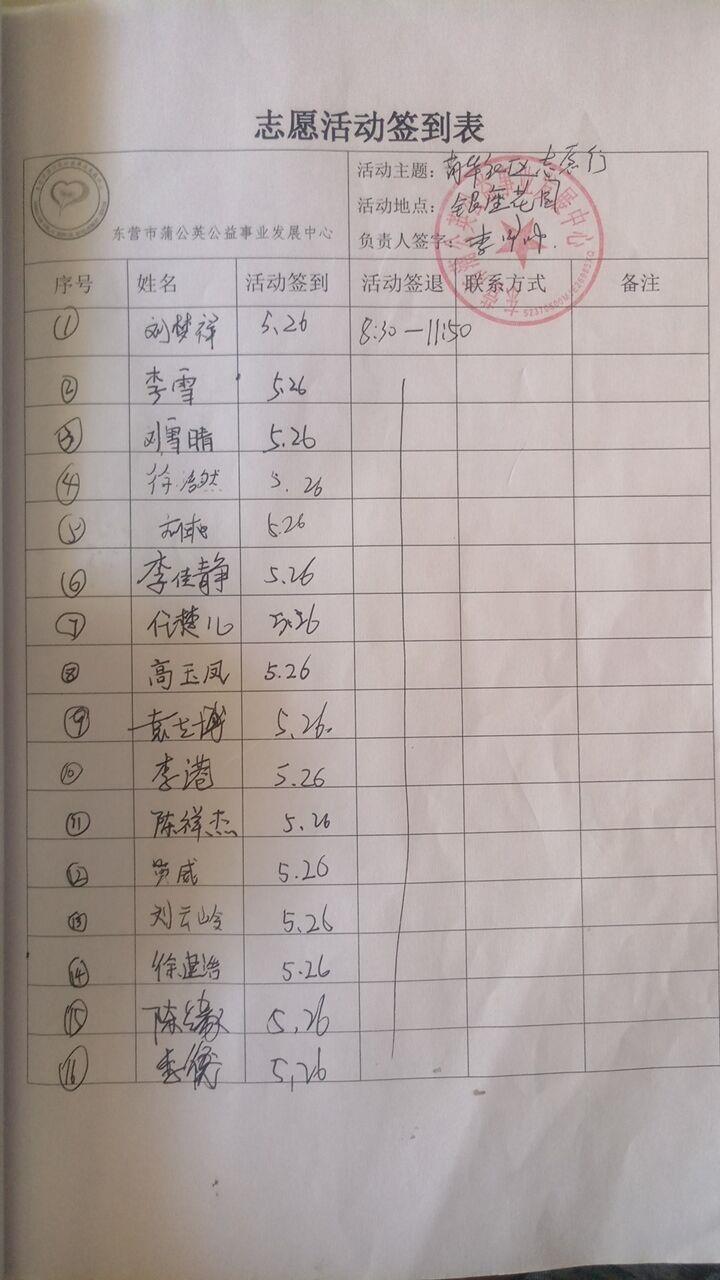 志愿活动签到表
东营市蒲公英公益事业发展中心
活动主题: 社区志愿行
活动地点: 银座花园
负责人签字: 李
序号 姓名 活动签到 活动签退 联系方式 备注
① 刘梦祥 5.26 8:30—11:50
② 李雪 5.26
③ 刘雪晴 5.26
④ 徐浩然 5.26
⑤ 5.26
⑥ 李佳静 5.26
⑦ 任楚儿 5.26
⑧ 高玉凤 5.26
⑨ 袁志博 5.26
⑩ 李港 5.26
⑪ 陈祥杰 5.26
⑫ 黄威 5.26
⑬ 刘云岭 5.26
⑭ 徐建浩 5.26
⑮ 陈 5.26
⑯ 李 5.26